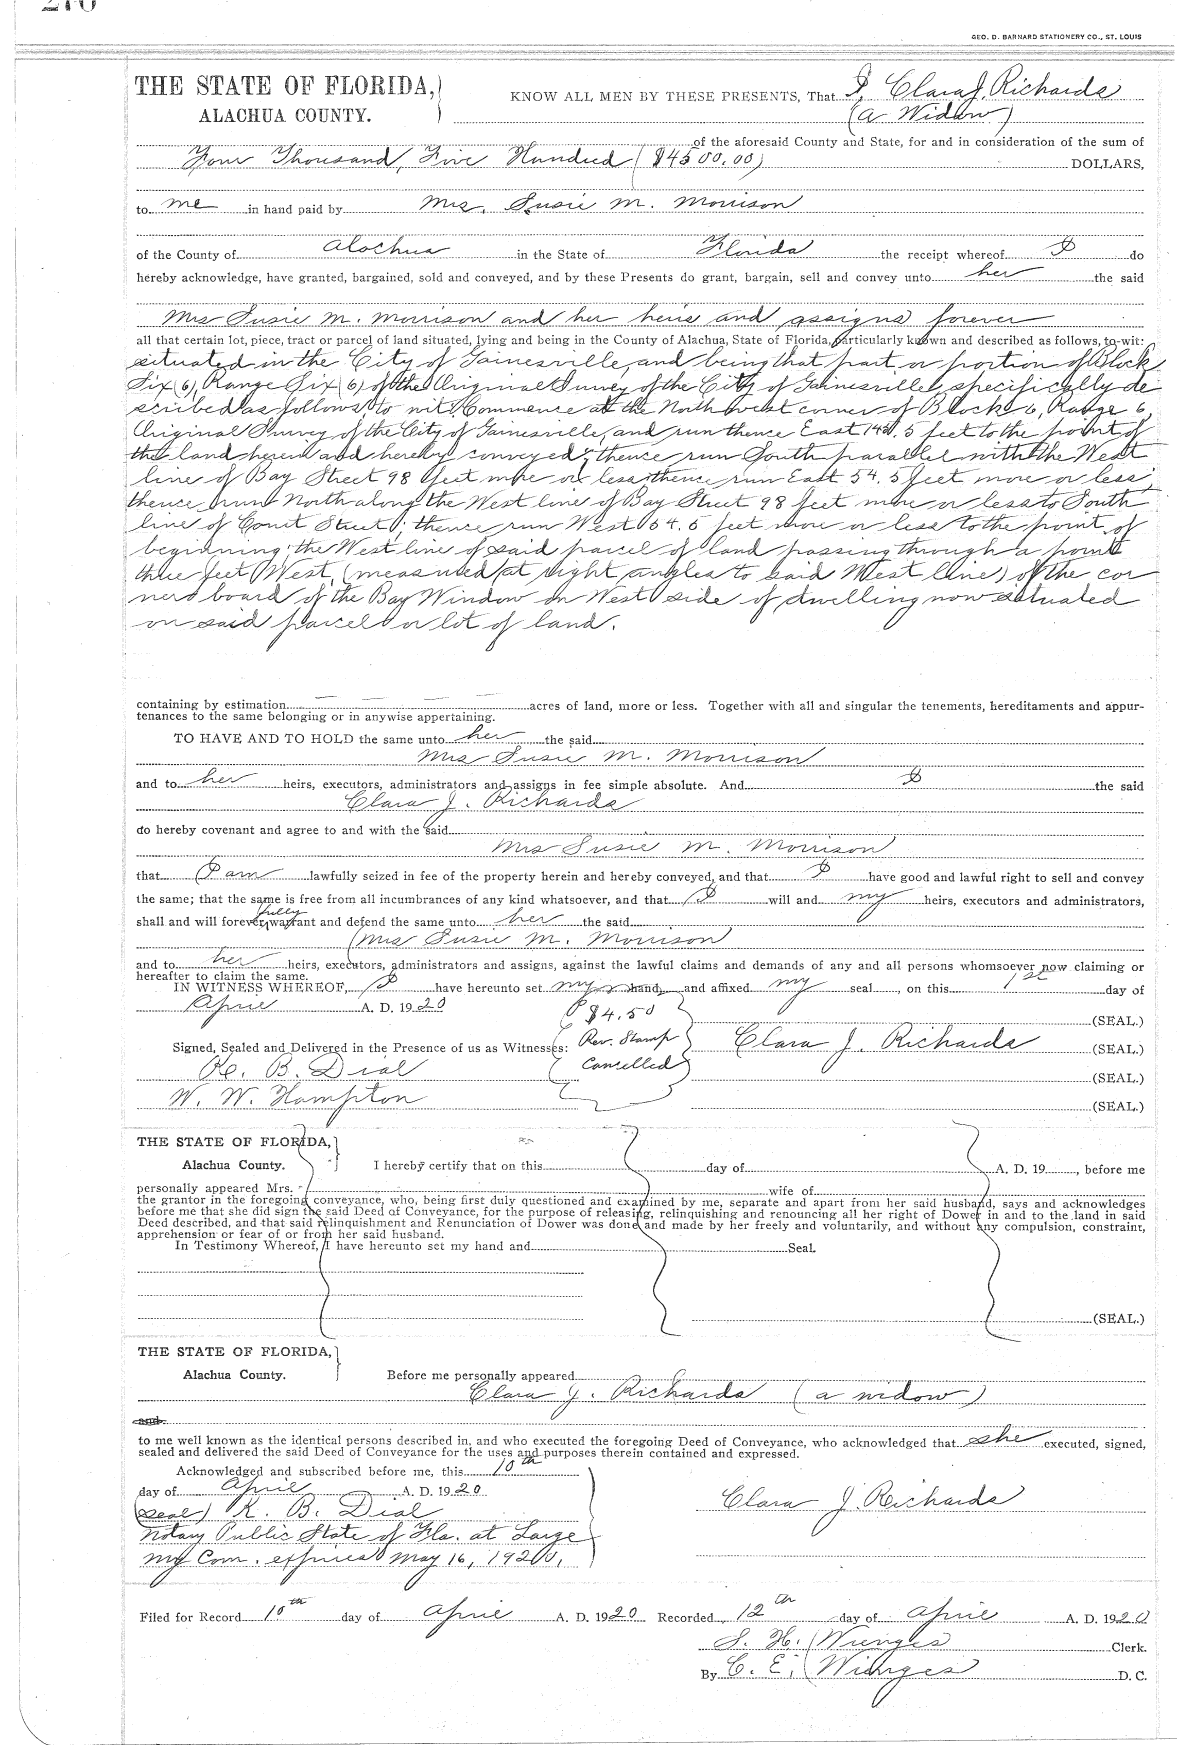 GEO. D. BARNARD STATIONERY CO., ST. LOUIS
THE STATE OF FLORIDA,
ALACHUA COUNTY.
KNOW ALL MEN BY THESE PRESENTS, That I, Clara J. Richards
(a Widow)
of the aforesaid County and State, for and in consideration of the sum of
Four Thousand, Five Hundred ($4500.00) DOLLARS,
to me in hand paid by Mrs. Susie M. Morrison
of the County of Alachua in the State of Florida the receipt whereof I do
hereby acknowledge, have granted, bargained, sold and conveyed, and by these Presents do grant, bargain, sell and convey unto her the said
Mrs Susie M. Morrison and her heirs and assigns forever
all that certain lot, piece, tract or parcel of land situated, lying and being in the County of Alachua, State of Florida, particularly known and described as follows, to-wit:
situated in the City of Gainesville, and being that part or portion of Block
Six (6), Range Six (6) of the Original Survey of the City of Gainesville specifically de
scribed as follows, to wit: Commence at the North west corner of Block 6, Range 6,
Original Survey of the City of Gainesville, and run thence East feet to the point of
the land herein and hereby conveyed; thence run South parallel with the West
line of Bay Street 98 feet more or less, thence run East 54.5 feet more or less;
thence run North along the West line of Bay Street 98 feet more or less to South
line of Court Street; thence run West 54.5 feet more or less to the point of
beginning; the West line of said parcel of land passing through a point
three feet West, (measured at right angles to said West line) of the cor
nerd board of the Bay Window on West side of dwelling now situated
on said parcel or lot of land.
containing by estimation acres of land, more or less. Together with all and singular the tenements, hereditaments and appur-
tenances to the same belonging or in anywise appertaining.
TO HAVE AND TO HOLD the same unto her the said
Mrs Susie M. Morrison
and to her heirs, executors, administrators and assigns in fee simple absolute. And I the said
Clara J. Richards
do hereby covenant and agree to and with the said
Mrs Susie M. Morrison
that I am lawfully seized in fee of the property herein and hereby conveyed, and that I have good and lawful right to sell and convey
the same; that the same is free from all incumbrances of any kind whatsoever, and that I will and my heirs, executors and administrators,
shall and will forever fully warrant and defend the same unto her the said
Mrs Susie M. Morrison
and to her heirs, executors, administrators and assigns, against the lawful claims and demands of any and all persons whomsoever now claiming or
hereafter to claim the same.
IN WITNESS WHEREOF, I have hereunto set my hand and affixed my seal, on this 1st day of
April A. D. 1920
$4.50
Rev. Stamp
Cancelled
(SEAL.)
Signed, Sealed and Delivered in the Presence of us as Witnesses: Clara J. Richards (SEAL.)
B. Dial (SEAL.)
W. W. Hampton (SEAL.)
THE STATE OF FLORIDA,
Alachua County. I hereby certify that on this day of A. D. 19 , before me
personally appeared Mrs. wife of
the grantor in the foregoing conveyance, who, being first duly questioned and examined by me, separate and apart from her said husband, says and acknowledges
before me that she did sign the said Deed of Conveyance, for the purpose of releasing, relinquishing and renouncing all her right of Dower in and to the land in said
Deed described, and that said relinquishment and Renunciation of Dower was done and made by her freely and voluntarily, and without any compulsion, constraint,
apprehension or fear of or from her said husband.
In Testimony Whereof, I have hereunto set my hand and Seal.
(SEAL.)
THE STATE OF FLORIDA,
Alachua County. Before me personally appeared
Clara J. Richards (a widow)
and
to me well known as the identical persons described in, and who executed the foregoing Deed of Conveyance, who acknowledged that she executed, signed,
sealed and delivered the said Deed of Conveyance for the uses and purposes therein contained and expressed.
Acknowledged and subscribed before me, this 10th
day of April A. D. 1920
(seal) K. B. Dial
Clara J. Richards
Notary Public State of Fla. at Large
My Com. expires May 16, 1920.
Filed for Record 10th day of April A. D. 1920 Recorded 12th day of April A. D. 1920
S. H. Wienges Clerk.
By C. E. Wienges D. C.